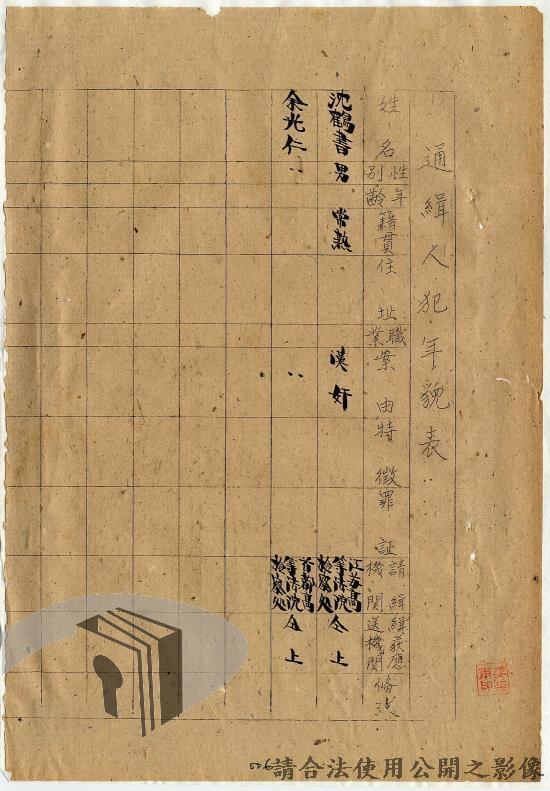 通緝人犯年貌表
姓名 性別 年齡 籍貫 住址 職業 案由 特徵 罪証 請緝機關 緝获應送機關 備註
沈鶴書 男 常熟 漢奸 江蘇高等法院檢察处 仝上
余光仁 〃 〃 首都高等法院檢察处 仝上
請合法使用公開之影像